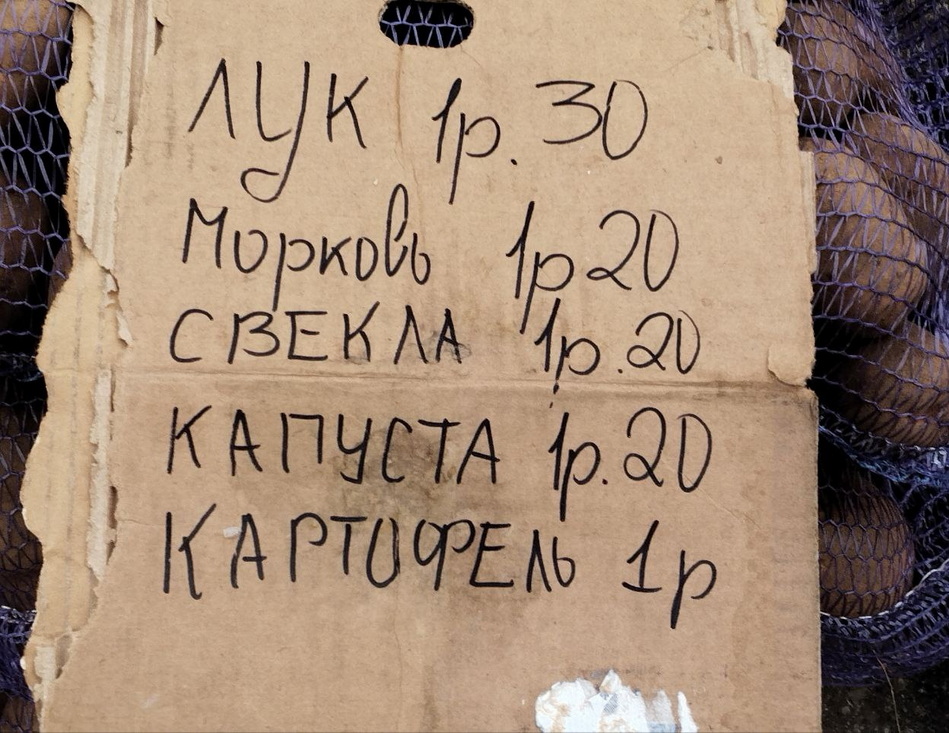 ЛУК 1р. 30
Морковь 1р 20
СВЕКЛА 1р. 20
КАПУСТА 1р. 20
КАРТОФЕЛЬ 1р